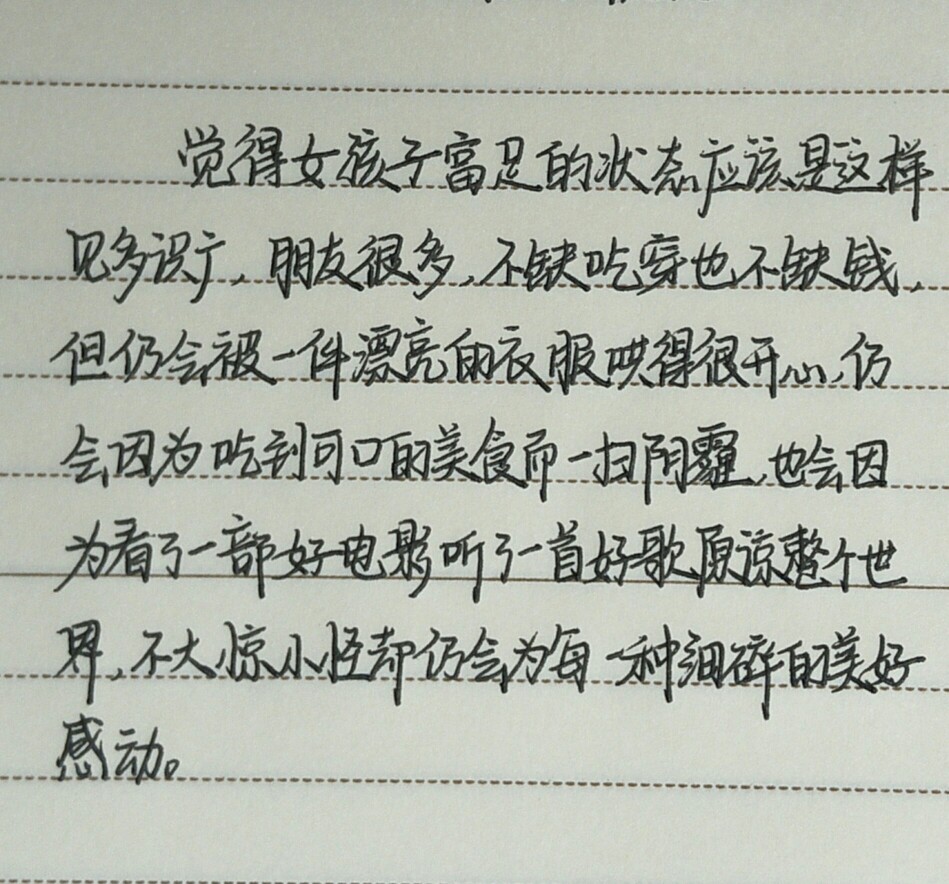 觉得女孩子富足的状态应该是这样
见多识广,朋友很多,不缺吃穿也不缺钱,
但仍会被一件漂亮的衣服哄得很开心,仍
会因为吃到可口的美食而一扫阴霾,也会因
为看了一部好电影听了一首好歌原谅整个世
界,不大惊小怪却仍会为每一种细碎的美好
感动。